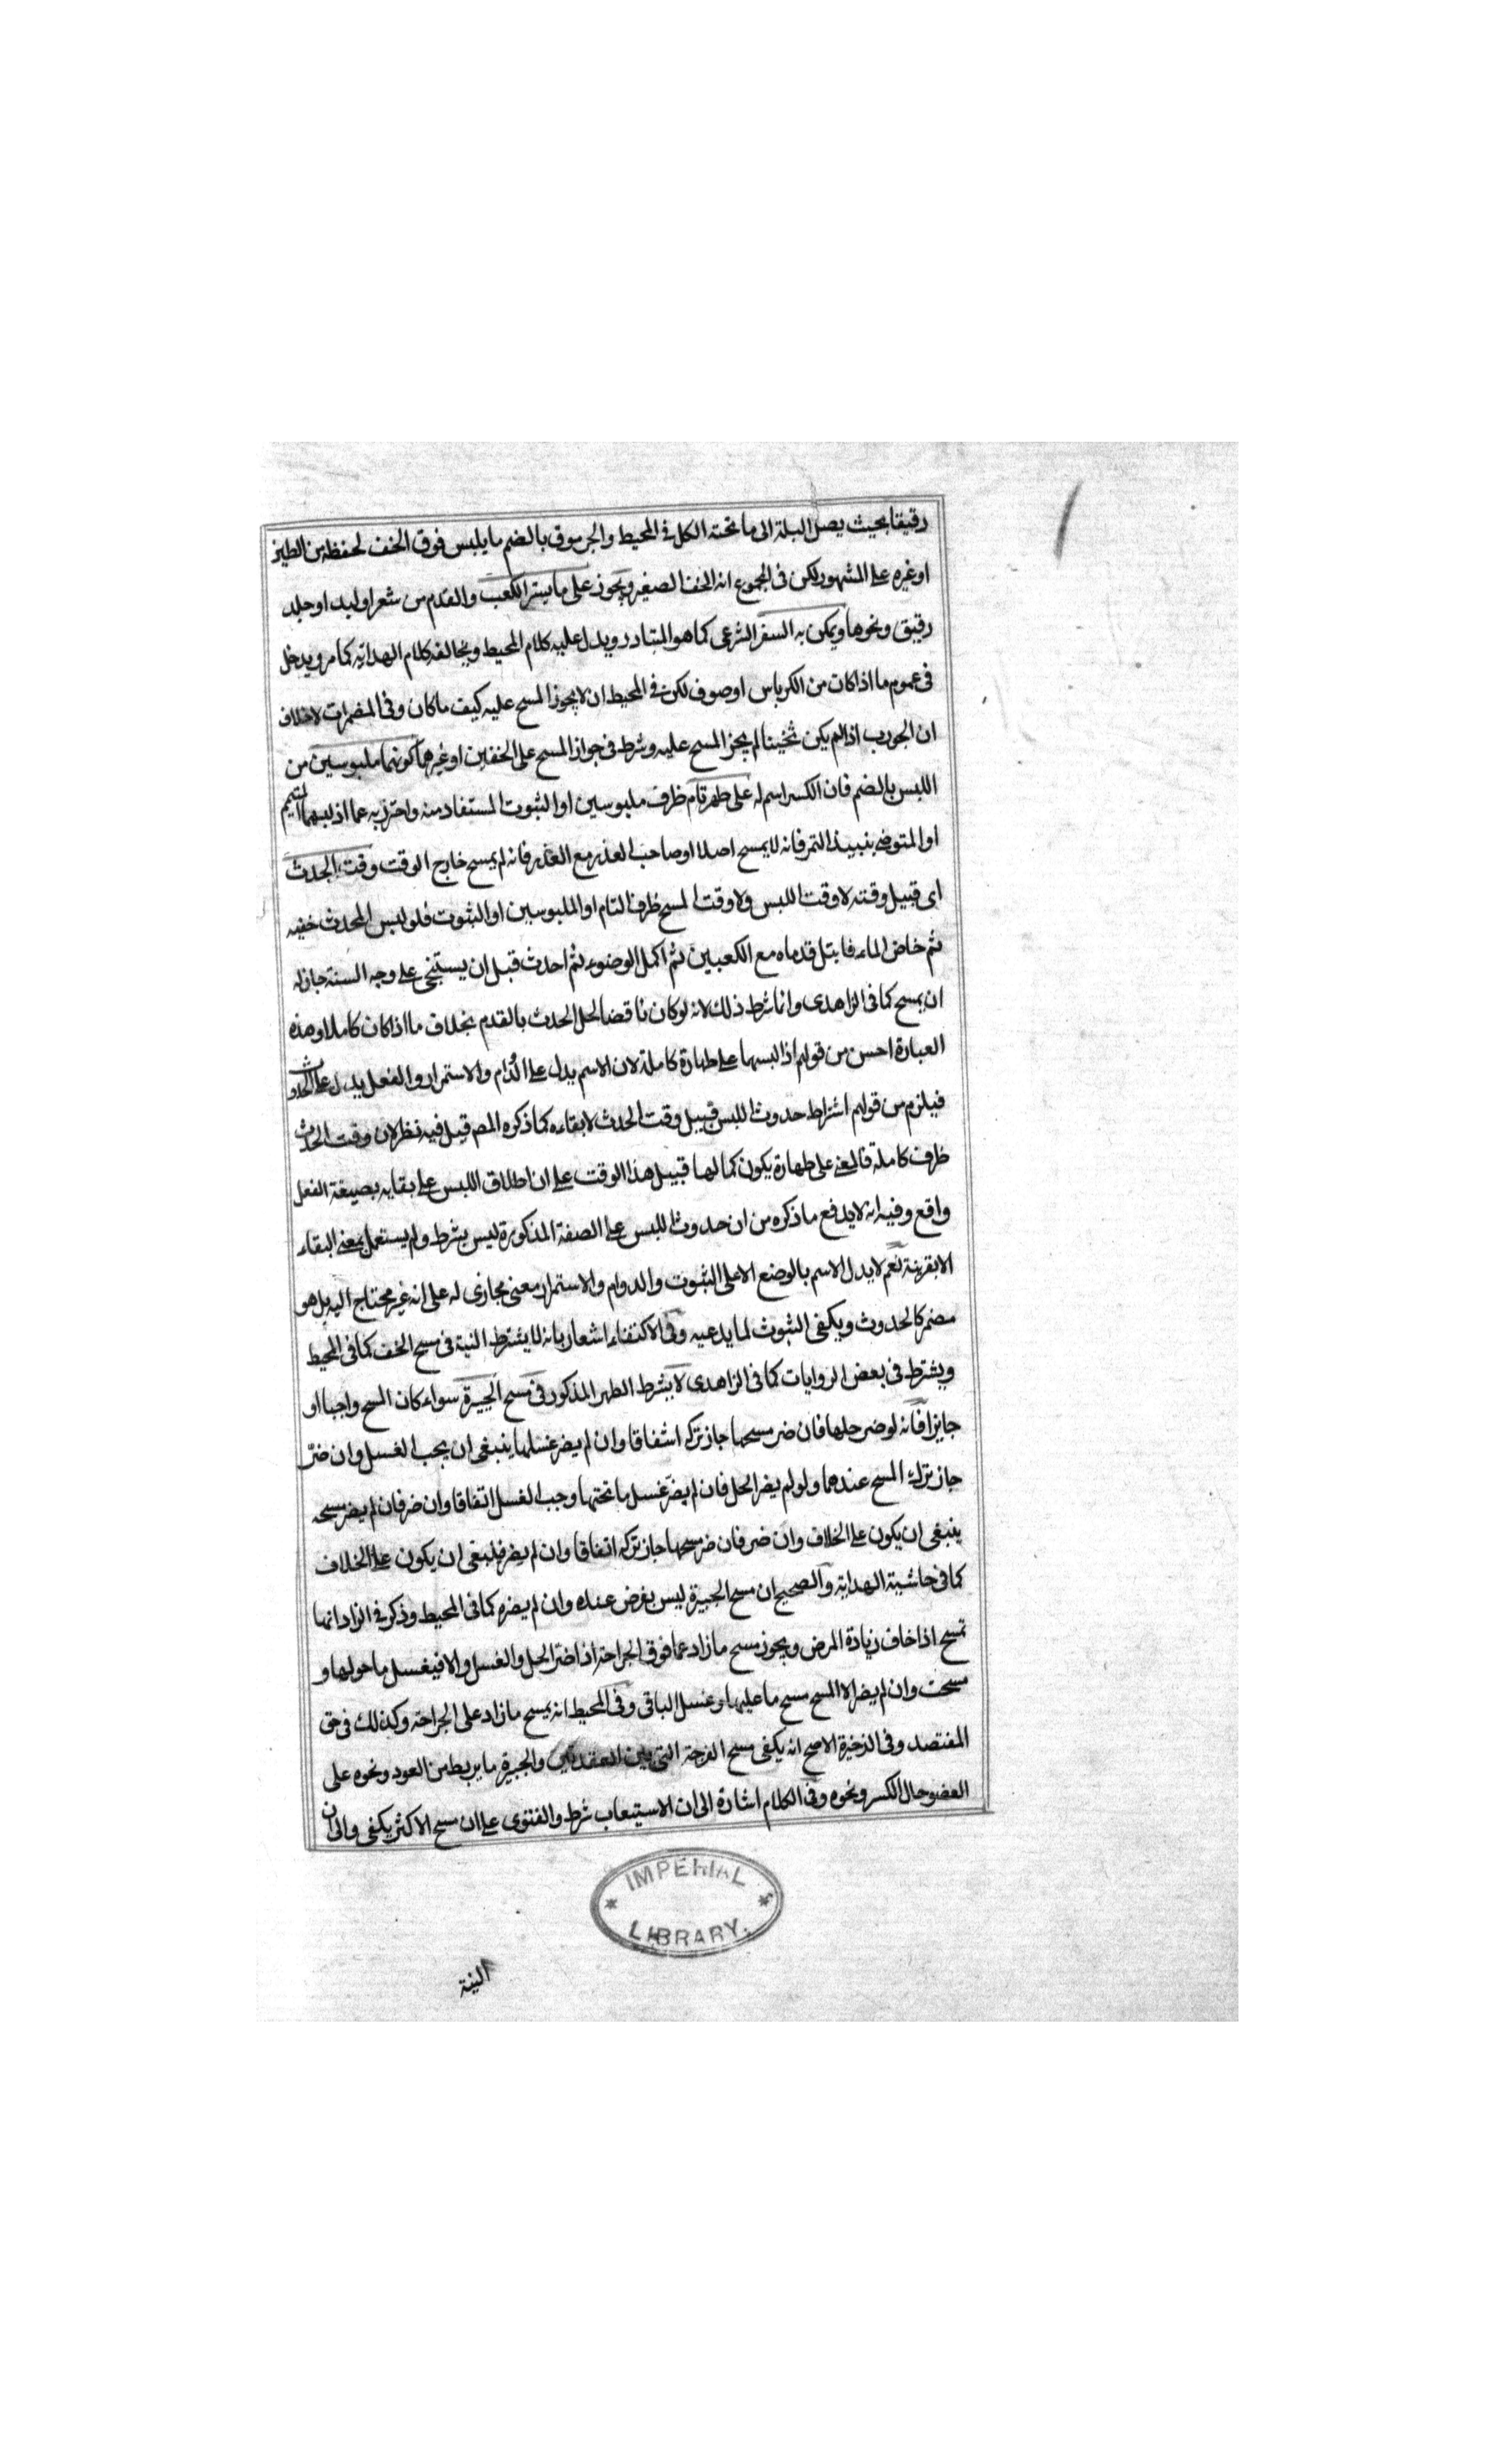 رقيقا بحيث يصل البلة الى ما تحته الكل فى المحيط والجرموق بالضم ما يلبس فوق الخف لحفظه من الطين
او غيره على المشهور لكن فى المجموع انه الخف الصغير ويجوز على ما يستر الكعب والقدم من شعر او لبد او جلد
رقيق ونحوها ويمكن به السفر الشرعى كما هو المتبادر ويدل عليه كلام المحيط ويخالفه كلام الهداية كما مر ويدخل
فى عموم ما اذا كان من الكرباس او صوف لكن فى المحيط ان لا يجوز المسح عليه كيف ما كان وفى المضمرات لا خلاف
ان الجورب اذا لم يكن ثخينا لم يجز المسح عليه وشرط فى جواز المسح على الخفين او غيرهما كونهما ملبوسين من
اللبس بالضم فان الكسر اسم له على طهر تام ظرف ملبوسين او الثبوت المستفاد منه واحترز به عما اذ لبسهما المتيمم
او المتوضى بنبيذ التمر فانه لا يمسح اصلا او صاحب العذر مع العذر فانه لم يمسح خارج الوقت وقت الحدث
اى قبيل وقته لا وقت اللبس ولا وقت المسح ظرف التام او الملبوسين او الثبوت فلو لبس المحدث خفيه
ثم خاض الماء فابتل قدماه مع الكعبين ثم اكمل الوضوء ثم احدث قبل ان يستنجى على وجه السنة جاز له
ان يمسح كما فى الزاهدى وانما شرط ذلك لانه لو كان ناقضا لحل الحدث بالقدم بخلاف ما اذا كان كاملا وهذه
العبارة احسن من قولهم اذا لبسهما على طهارة كاملة لان الاسم يدل على الدوام والاستمرار والفعل يدل على الحدوث
فيلزم من قولهم اشتراط حدوث اللبس قبيل وقت الحدث لا بقاءه كما ذكره المص قيل فيه نظر لان وقت الحدث
ظرف كاملة فالمعنى على طهارة يكون كمالها قبيل هذا الوقت على ان اطلاق اللبس على بقايه بصيغة الفعل
واقع وفيه انه لا يدفع ما ذكره من ان حدوث اللبس على الصفة المذكورة ليس بشرط ولم يستعمل بمعنى البقاء
الا بقرينة نعم لا يدل الاسم بالوضع الا على الثبوت والدوام والاستمرار معنى مجازى له على انه غير محتاج اليه بل هو
مضر كالحدوث ويكفى الثبوت لما يدعيه وفى الاكتفاء اشعار بانه لا يشترط النية فى مسح الخف كما فى المحيط
ويشترط فى بعض الروايات كما فى الزاهدى لا يشرط الطهر المذكور فى مسح الجبيرة سواء كان المسح واجبا او
جايزا فانه لو ضر حلها فان ضر مسحها جاز تركه اشفاقا وان لم يضر غسلها ينبغى ان يجب الغسل وان ضرّ
جاز ترك المسح عندهما ولو لم يضر الحل فان لم يضر غسل ما تحتها وجب الغسل اتفاقا وان ضر فان لم يضر مسحه
ينبغى ان يكون على الخلاف وان ضر فان ضر مسحها جاز تركه اتفاقا وان لم يضر فلبغى ان يكون على الخلاف
كما فى حاشية الهداية والصحيح ان مسح الجبيرة ليس بفرض عنده وان لم يضره كما فى المحيط وذكر فى الزاد انها
تمسح اذا خاف زيادة المرض ويجوز مسح ما زاد عما فوق الجراحة اذا ضر الحل والغسل والا فيغسل ما حولها و
مسحت وان لم يضر الا المسح مسح ما عليها وغسل الباقى وفى المحيط انه يمسح ما زاد على الجراحة وكذلك فى حق
المفتصد وفى الذخيرة الاصح انه يكفى مسح الفرجة التى بين العقدتين والجبيرة ما يربط من العود ونحوه على
العضو حال الكسر ونحوه وفى الكلام اشارة الى ان الاستيعاب شرط والفتوى على ان مسح الاكثر يكفى والى ان
IMPERIAL
LIBRARY.
النية